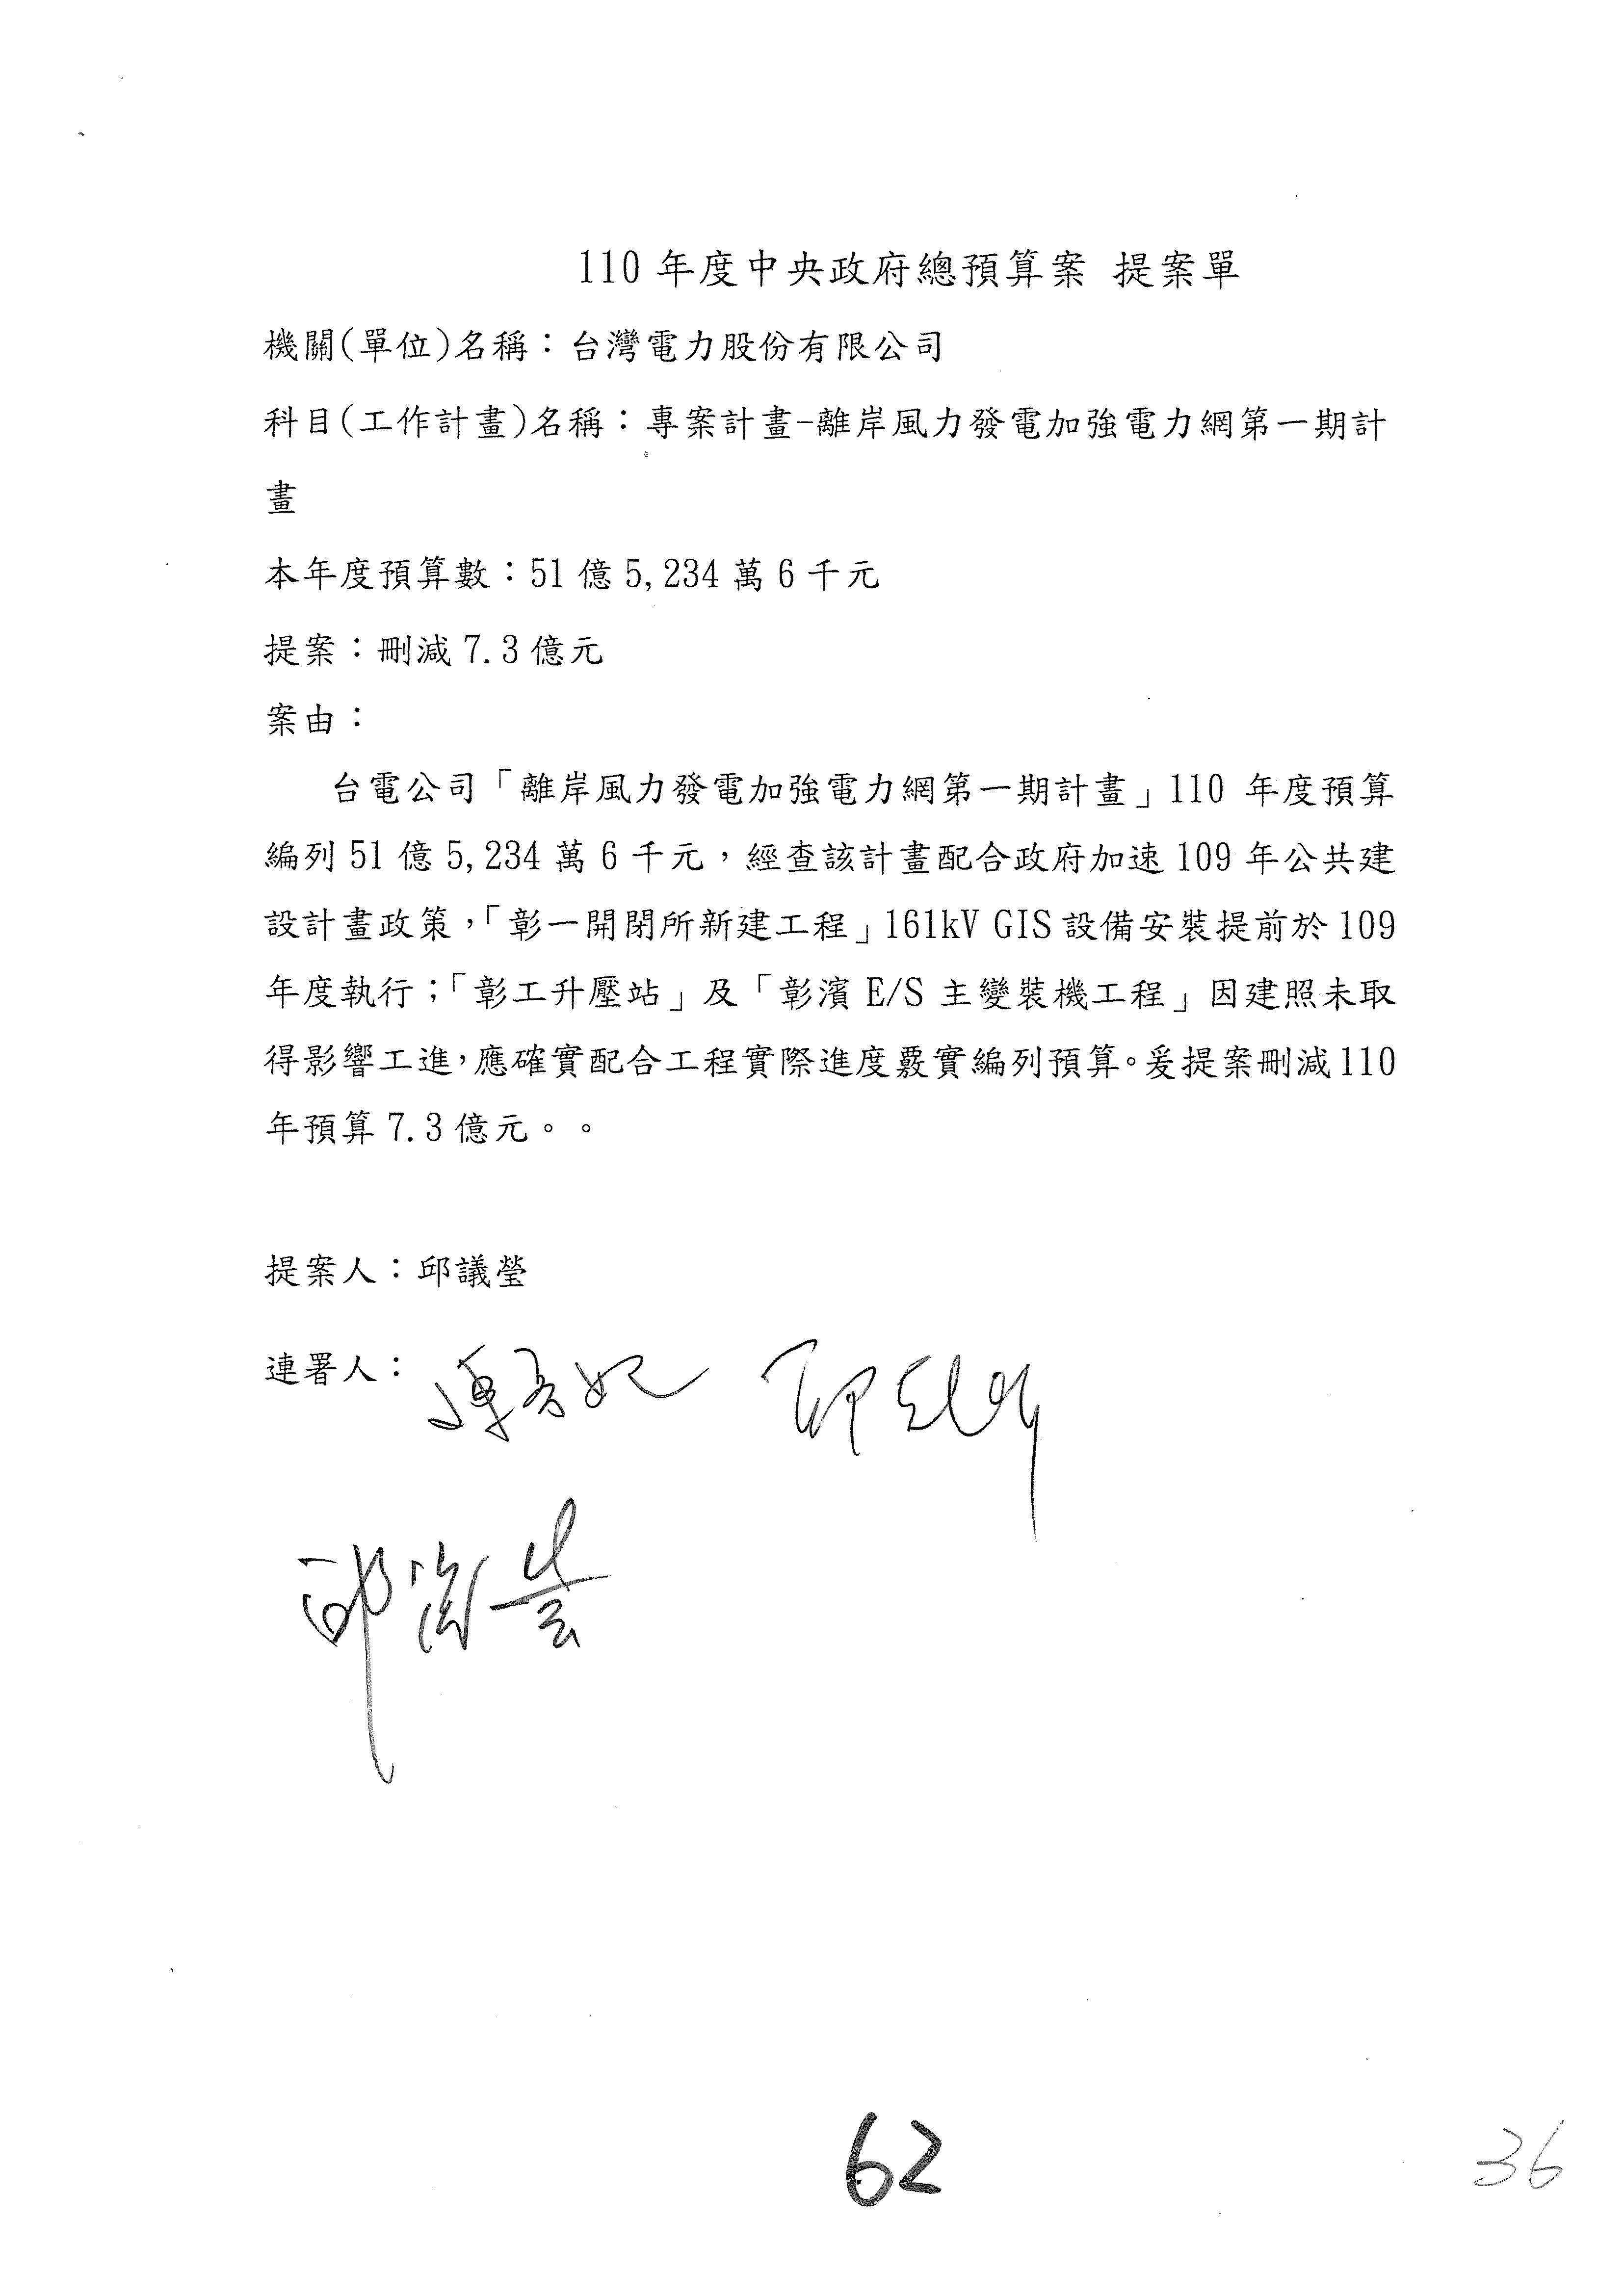 110 年度中央政府總預算案 提案單
機關(單位)名稱：台灣電力股份有限公司
科目(工作計畫)名稱：專案計畫-離岸風力發電加強電力網第一期計
畫
本年度預算數：51 億 5,234 萬 6 千元
提案：刪減 7.3 億元
案由：
台電公司「離岸風力發電加強電力網第一期計畫」110 年度預算
編列 51 億 5,234 萬 6 千元，經查該計畫配合政府加速 109 年公共建
設計畫政策，「彰一開閉所新建工程」161kV GIS 設備安裝提前於 109
年度執行；「彰工升壓站」及「彰濱 E/S 主變裝機工程」因建照未取
得影響工進，應確實配合工程實際進度覈實編列預算。爰提案刪減 110
年預算 7.3 億元。。
提案人：邱議瑩
連署人：
62
36